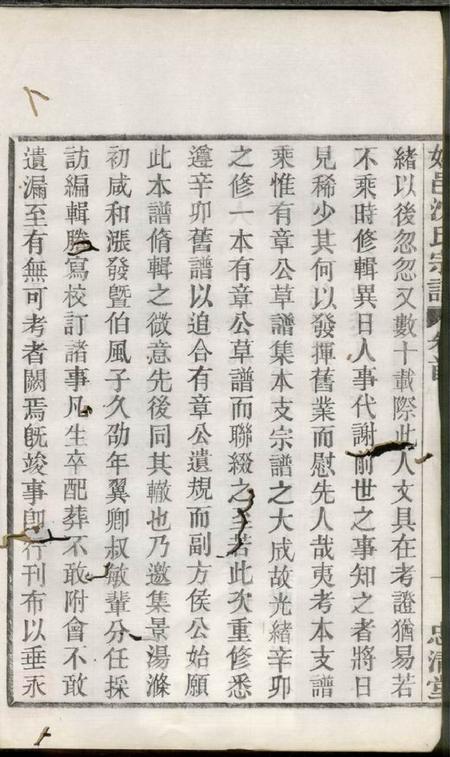 沈氏宗譜 卷首 忠清堂
緒以後忽忽又數十載際此人文具在考證猶易若
不乘時修輯異日人事代謝前世之事知之者將日
見稀少其何以發揮舊業而慰先人哉夷考本支譜
乘惟有章公草譜集本支宗譜之大成故光緒辛卯
之修一本有章公草譜而聯綴之至若此次重修悉
遵辛卯舊譜以追合有章公遺規而副方侯公始願
此本譜脩輯之微意先後同其轍也乃邀集景湯滌
初咸和漲發暨伯風子久劭年翼卿叔敏輩分任採
訪編輯謄寫校訂諸事凡生卒配葬不敢附會不敢
遺漏至有無可考者闕焉旣竣事卽行刊布以垂永